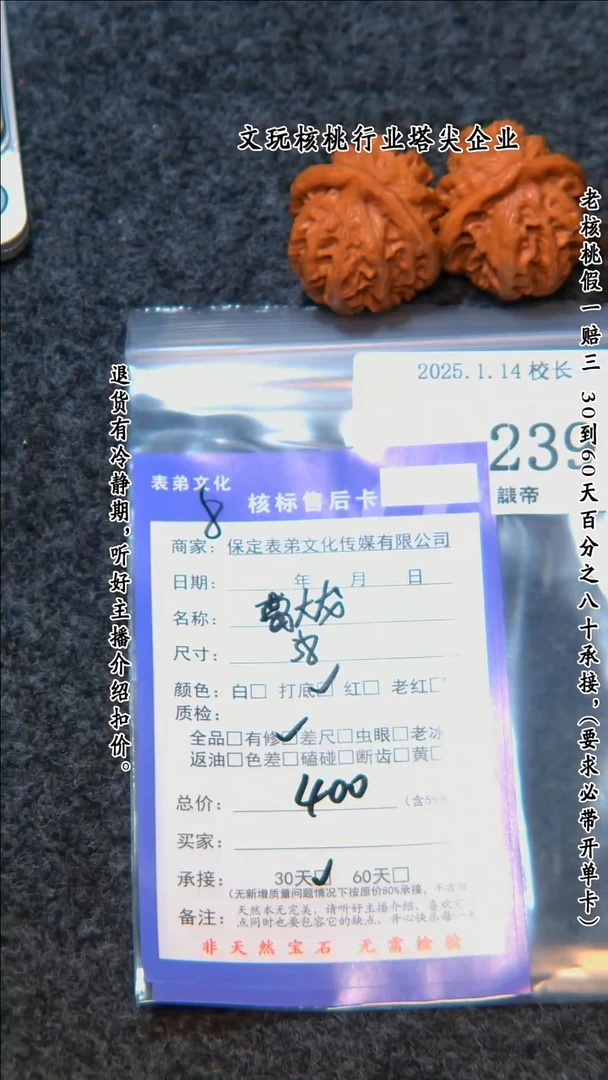 文玩核桃行业塔尖企业
老核桃假一赔三 30到60天百分之八十承接，（要求必带开单卡）
退货有冷静期，听好主播介绍扣价。
2025.1.14 校长
239
戴帝
表弟文化
8
核标售后卡
商家：保定表弟文化传媒有限公司
日期： 年 月 日
名称：
尺寸：38
颜色：白□ 打底□ 红□ 老红□
质检：
全品□有修□差尺□虫眼□老冰
返油□色差□磕碰□断齿□黄□
总价：400（含5%
买家：
承接：30天□ 60天□
（无新增质量问题情况下按原价80%承接，不含
备注：天然本无完美，请听好主播介绍，喜欢它
点同时也要包容它的缺点，开心快乐每一天
非天然宝石 无需检验